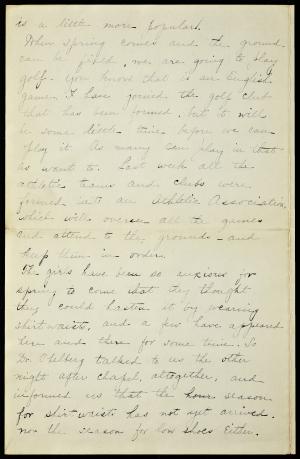 is a little more popular.
When spring comes and the ground
can be fixed, we are going to play
golf. You know that is an English
game. I have joined the golf club
that has been formed, but it will
be some little time before we can
play it. As many can play in that
as want to. Last week all the
athletic teams and clubs were
formed into an Athletic Association,
which will oversee all the games
and attend to the grounds - and
keep them in order.
The girls have been so anxious for
spring to come that they thought
they could hasten it by wearing
shirtwaists, and a few have appeared
here and there for some time. So
Dr. talked to us the other
night after chapel, altogether, and
informed us that the season
for shirt-waists has not yet arrived.
nor the season for low shoes either.